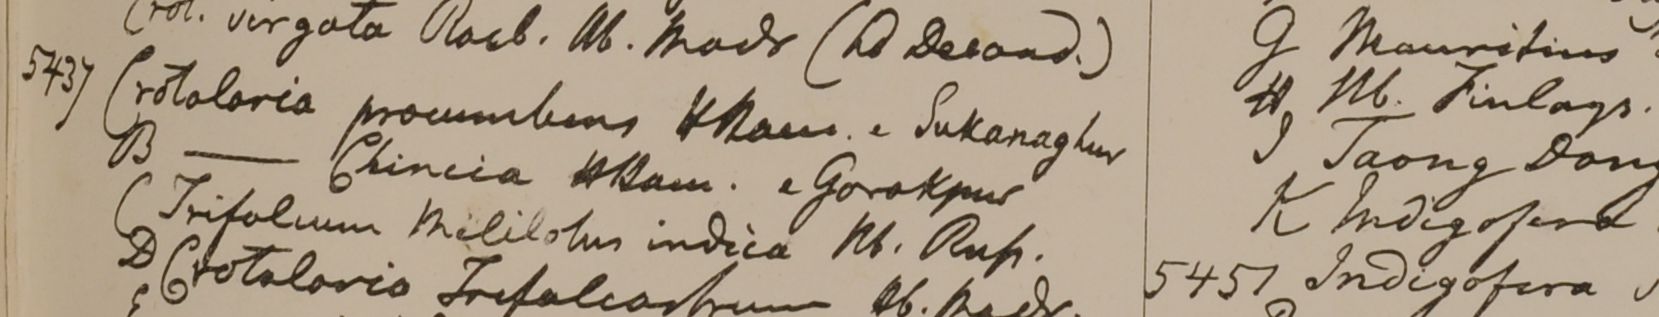 Crot. virgata Roxb. Hb. Madr (ed Decand.)
5437 Crotalaria procumbens HHam. e Sukanaghur
B —— Chincia HHam. e Gorakpur
C Trifolium Melilotus indica Hb. Rup.
D Crotalaria Trifoliastrum Hb. Madr.
G Mauritius
H Hb. Finlays.
I Taong Dong
K Indigofera
5451 Indigofera